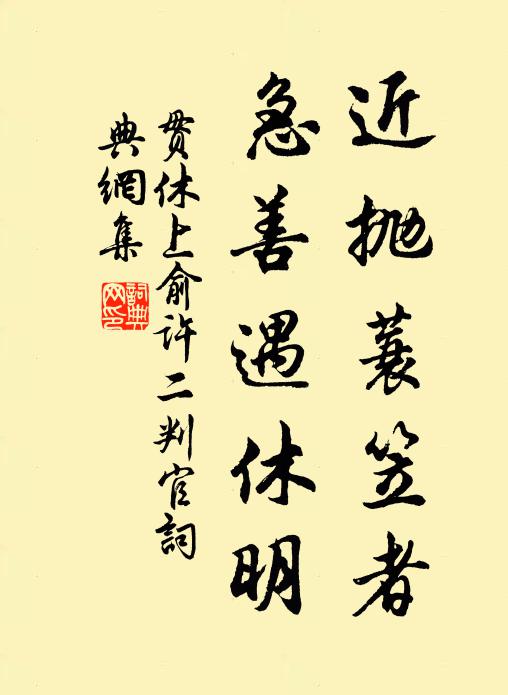 近抛蓑笠者
急善遇休明
贯休上俞许二判官词
典網集
詞典
网印